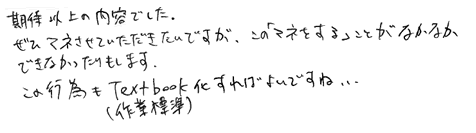 期待以上の内容でした。
ぜひマネさせていただきたいですが、この「マネをする」ことがなかなか
できなかったりもします。
この行為も Textbook 化すればよいですね...
(作業標準)